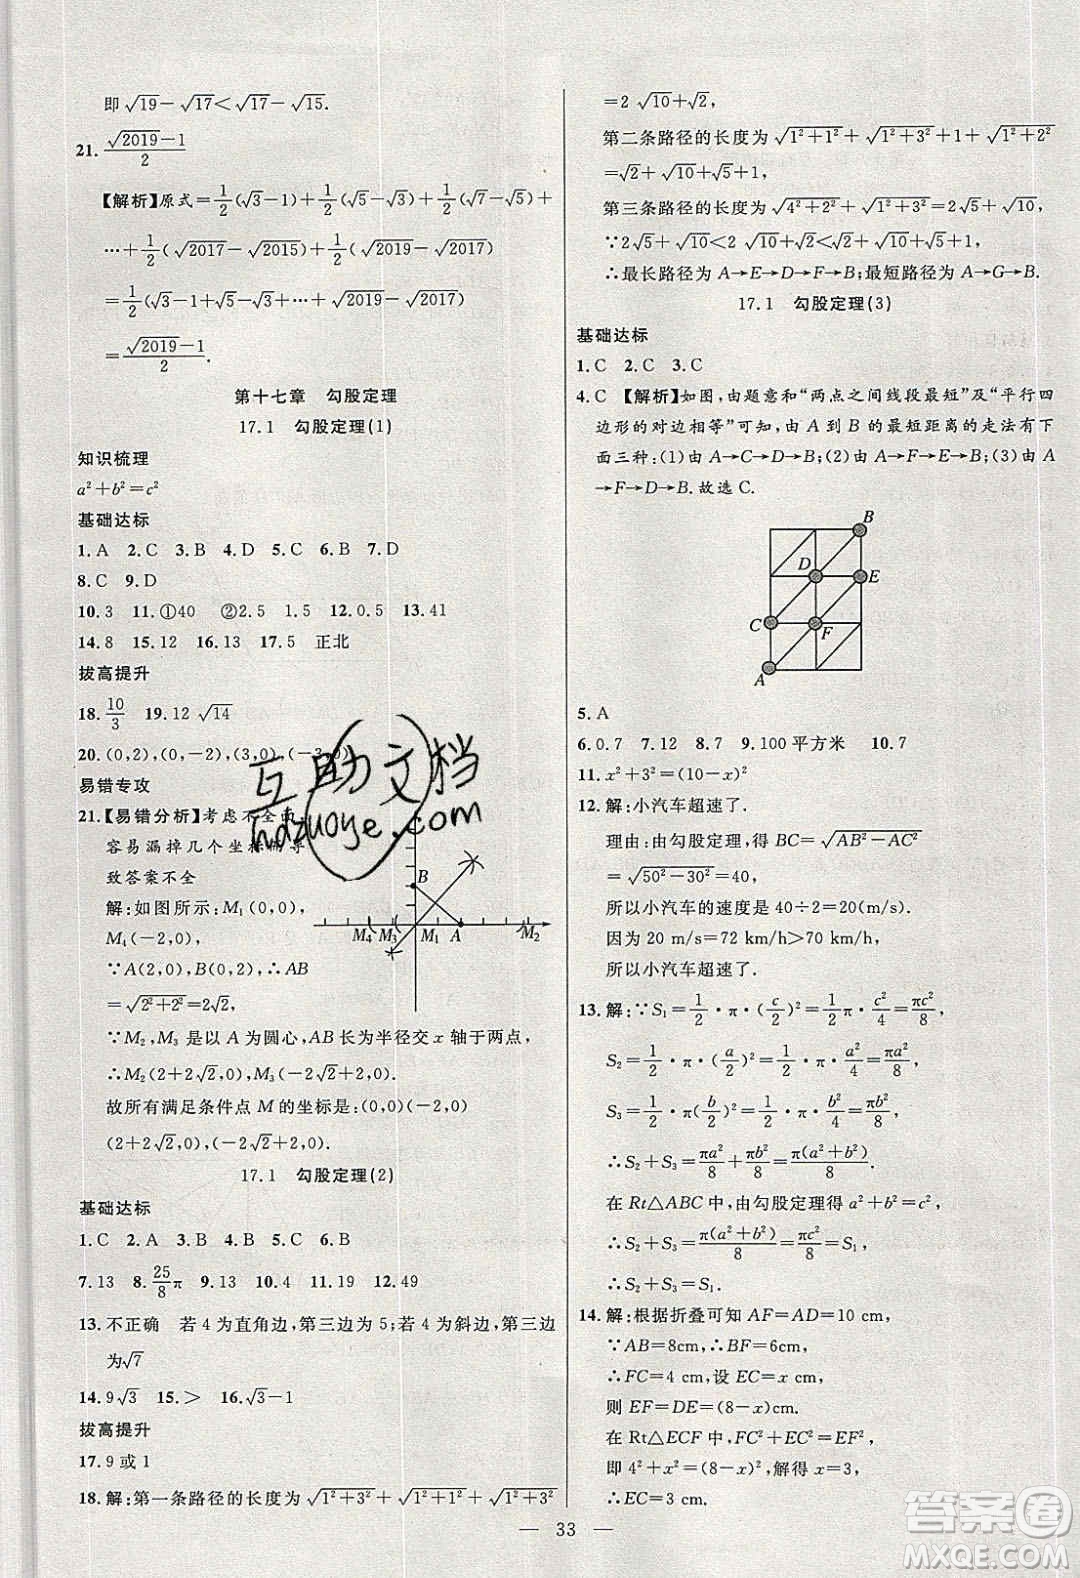 即√19－√17＜√17－√15.
21. (√2019－1)/2
【解析】原式＝1/2(√3－1)＋1/2(√5－√3)＋1/2(√7－√5)＋
…＋1/2(√2017－√2015)＋1/2(√2019－√2017)
＝1/2(√3－1＋√5－√3＋…＋√2019－√2017)
＝(√2019－1)/2.
第十七章 勾股定理
17.1 勾股定理(1)
知识梳理
a²＋b²＝c²
基础达标
1.A 2.C 3.B 4.D 5.C 6.C 7.D
8.C 9.D
10.3 11.①40 ②2.5 1.5 12.0.5 13.41
14.8 15.12 16.13 17.5 正北
拔高提升
18. 10/3 19.12 √14
20.(0,2),(0,－2),(3,0),(－3,0)
易错专攻
21.【易错分析】考虑不全面
容易漏掉几个坐标
致答案不全
解:如图所示:M₁(0,0),
M₄(－2,0),
∵A(2,0),B(0,2),∴AB
＝√(2²＋2²)＝2√2,
B
M₄ M₃ M₁ A M₂
∵M₂,M₃是以A为圆心,AB长为半径交x轴于两点,
∴M₂(2＋2√2,0),M₃(－2√2＋2,0).
故所有满足条件点M的坐标是:(0,0)(－2,0)
(2＋2√2,0),(－2√2＋2,0).
17.1 勾股定理(2)
基础达标
1.C 2.A 3.B 4.B 5.C 6.B
7.13 8. 25/8 π 9.13 10.4 11.2 12.49
13.不正确 若4为直角边,第三边为5;若4为斜边,第三边
为√7
14.9√3 15.＞ 16.√3－1
拔高提升
17.9或1
18.解:第一条路径的长度为√(1²＋3²)＋√(1²＋1²)＋√(1²＋3²)
＝2√10＋√2,
第二条路径的长度为√(1²＋1²)＋√(1²＋3²)＋1＋√(1²＋2²)
＝√2＋√10＋√5＋1,
第三条路径的长度为√(4²＋2²)＋√(1²＋3²)＝2√5＋√10,
∵2√5＋√10＜2√10＋√2＜√2＋√10＋√5＋1,
∴最长路径为A→E→D→F→B;最短路径为A→G→B.
17.1 勾股定理(3)
基础达标
1.C 2.C 3.C
4.C 【解析】如图,由题意和“两点之间线段最短”及“平行四
边形的对边相等”可知,由A到B的最短距离的走法有下
面三种:(1)由A→C→D→B;(2)由A→F→E→B;(3)由A
→F→D→B.故选C.
B
D E
C F
A
5.A
6.0.7 7.12 8.7 9.100平方米 10.7
11.x²＋3²＝(10－x)²
12.解:小汽车超速了.
理由:由勾股定理,得BC＝√(AB²－AC²)
＝√(50²－30²)＝40,
所以小汽车的速度是40÷2＝20(m/s),
因为20 m/s＝72 km/h＞70 km/h,
所以小汽车超速了.
13.解:∵S₁＝1/2·π·(c/2)²＝1/2·π·c²/4＝πc²/8,
S₂＝1/2·π·(a/2)²＝1/2·π·a²/4＝πa²/8,
S₃＝1/2·π(b/2)²＝1/2·π·b²/4＝πb²/8,
∴S₂＋S₃＝πa²/8＋πb²/8＝π(a²＋b²)/8.
在Rt△ABC中,由勾股定理得a²＋b²＝c²,
∴S₂＋S₃＝π(a²＋b²)/8＝πc²/8＝S₁,
∴S₂＋S₃＝S₁.
14.解:根据折叠可知AF＝AD＝10 cm,
∵AB＝8cm,∴BF＝6cm,
∴FC＝4 cm,设EC＝x cm,
则EF＝DE＝(8－x)cm.
在Rt△ECF中,FC²＋EC²＝EF²,
即4²＋x²＝(8－x)²,解得x＝3,
∴EC＝3 cm.
— 33 —
互助文档
hdzuoye.com
答案圈
MXQE.COM